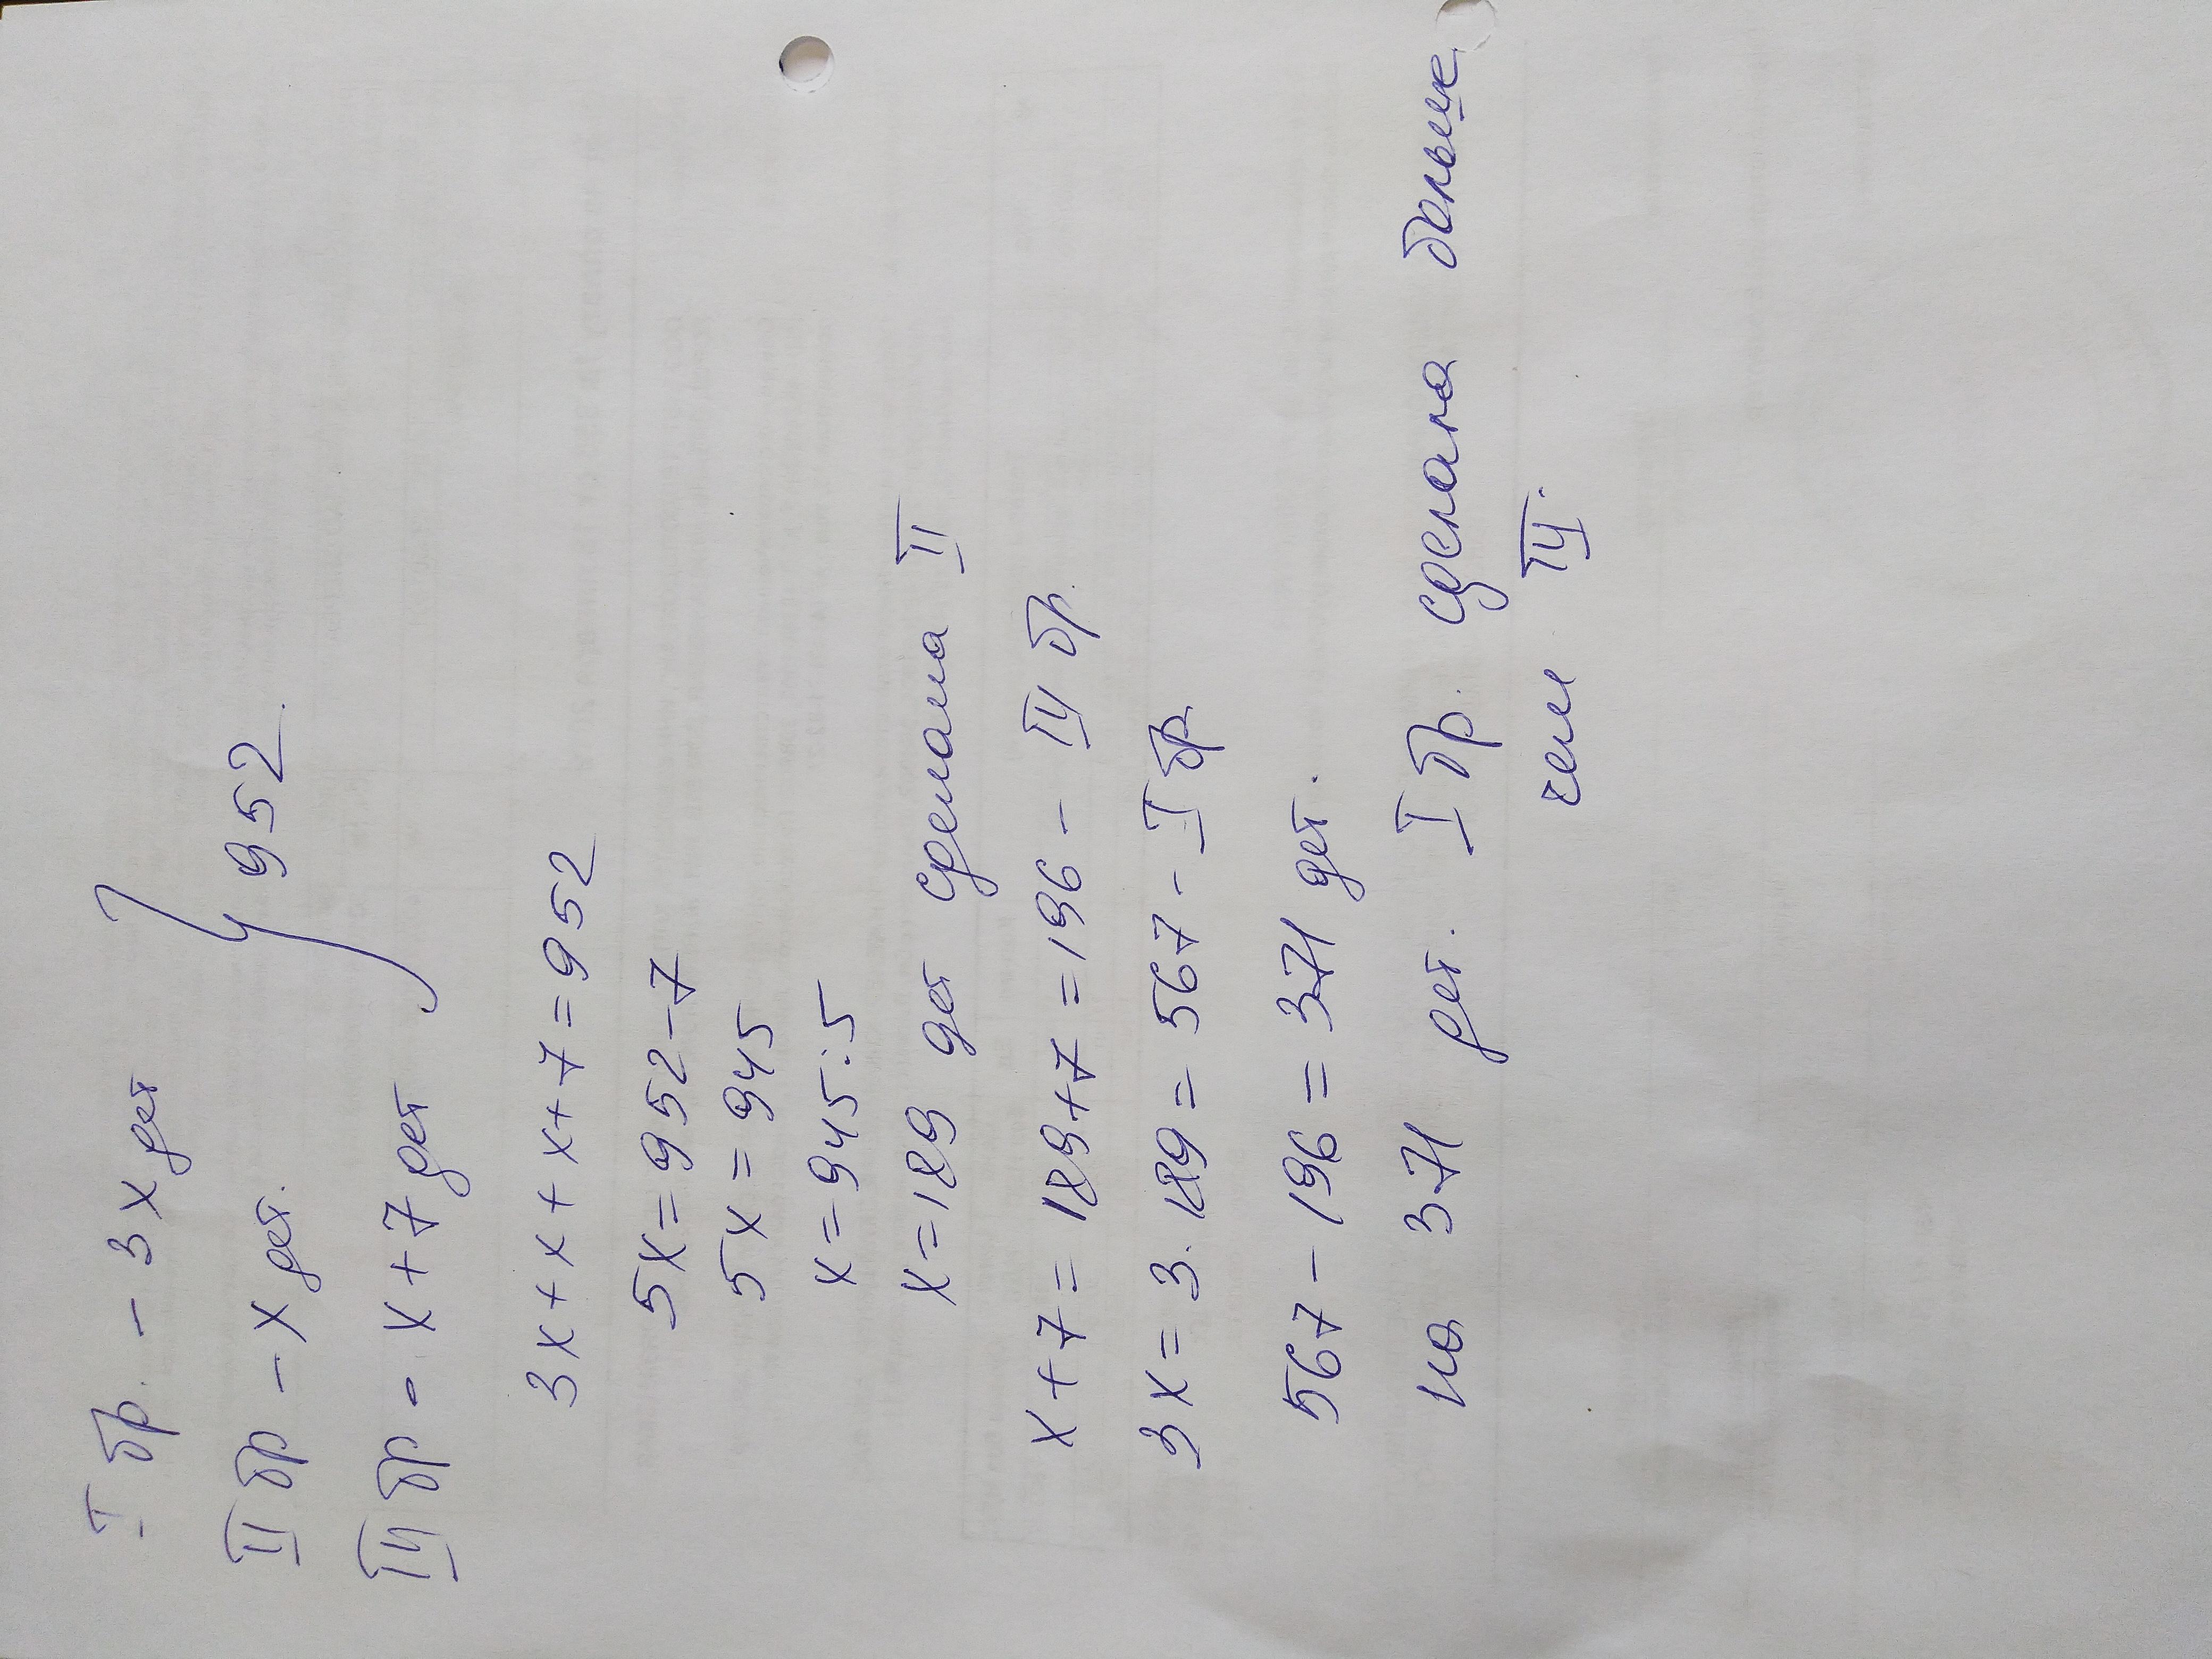 I бр. - 3x дет
II бр - x дет.
III бр - x + 7 дет
} 952.
3x + x + x + 7 = 952
5x = 952 - 7
5x = 945
x = 945 : 5
x = 189 дет сделала II
x + 7 = 189 + 7 = 196 - III бр.
3x = 3 · 189 = 567 - I бр.
567 - 196 = 371 дет.
на 371 дет. I бр. сделала больше
чем III.